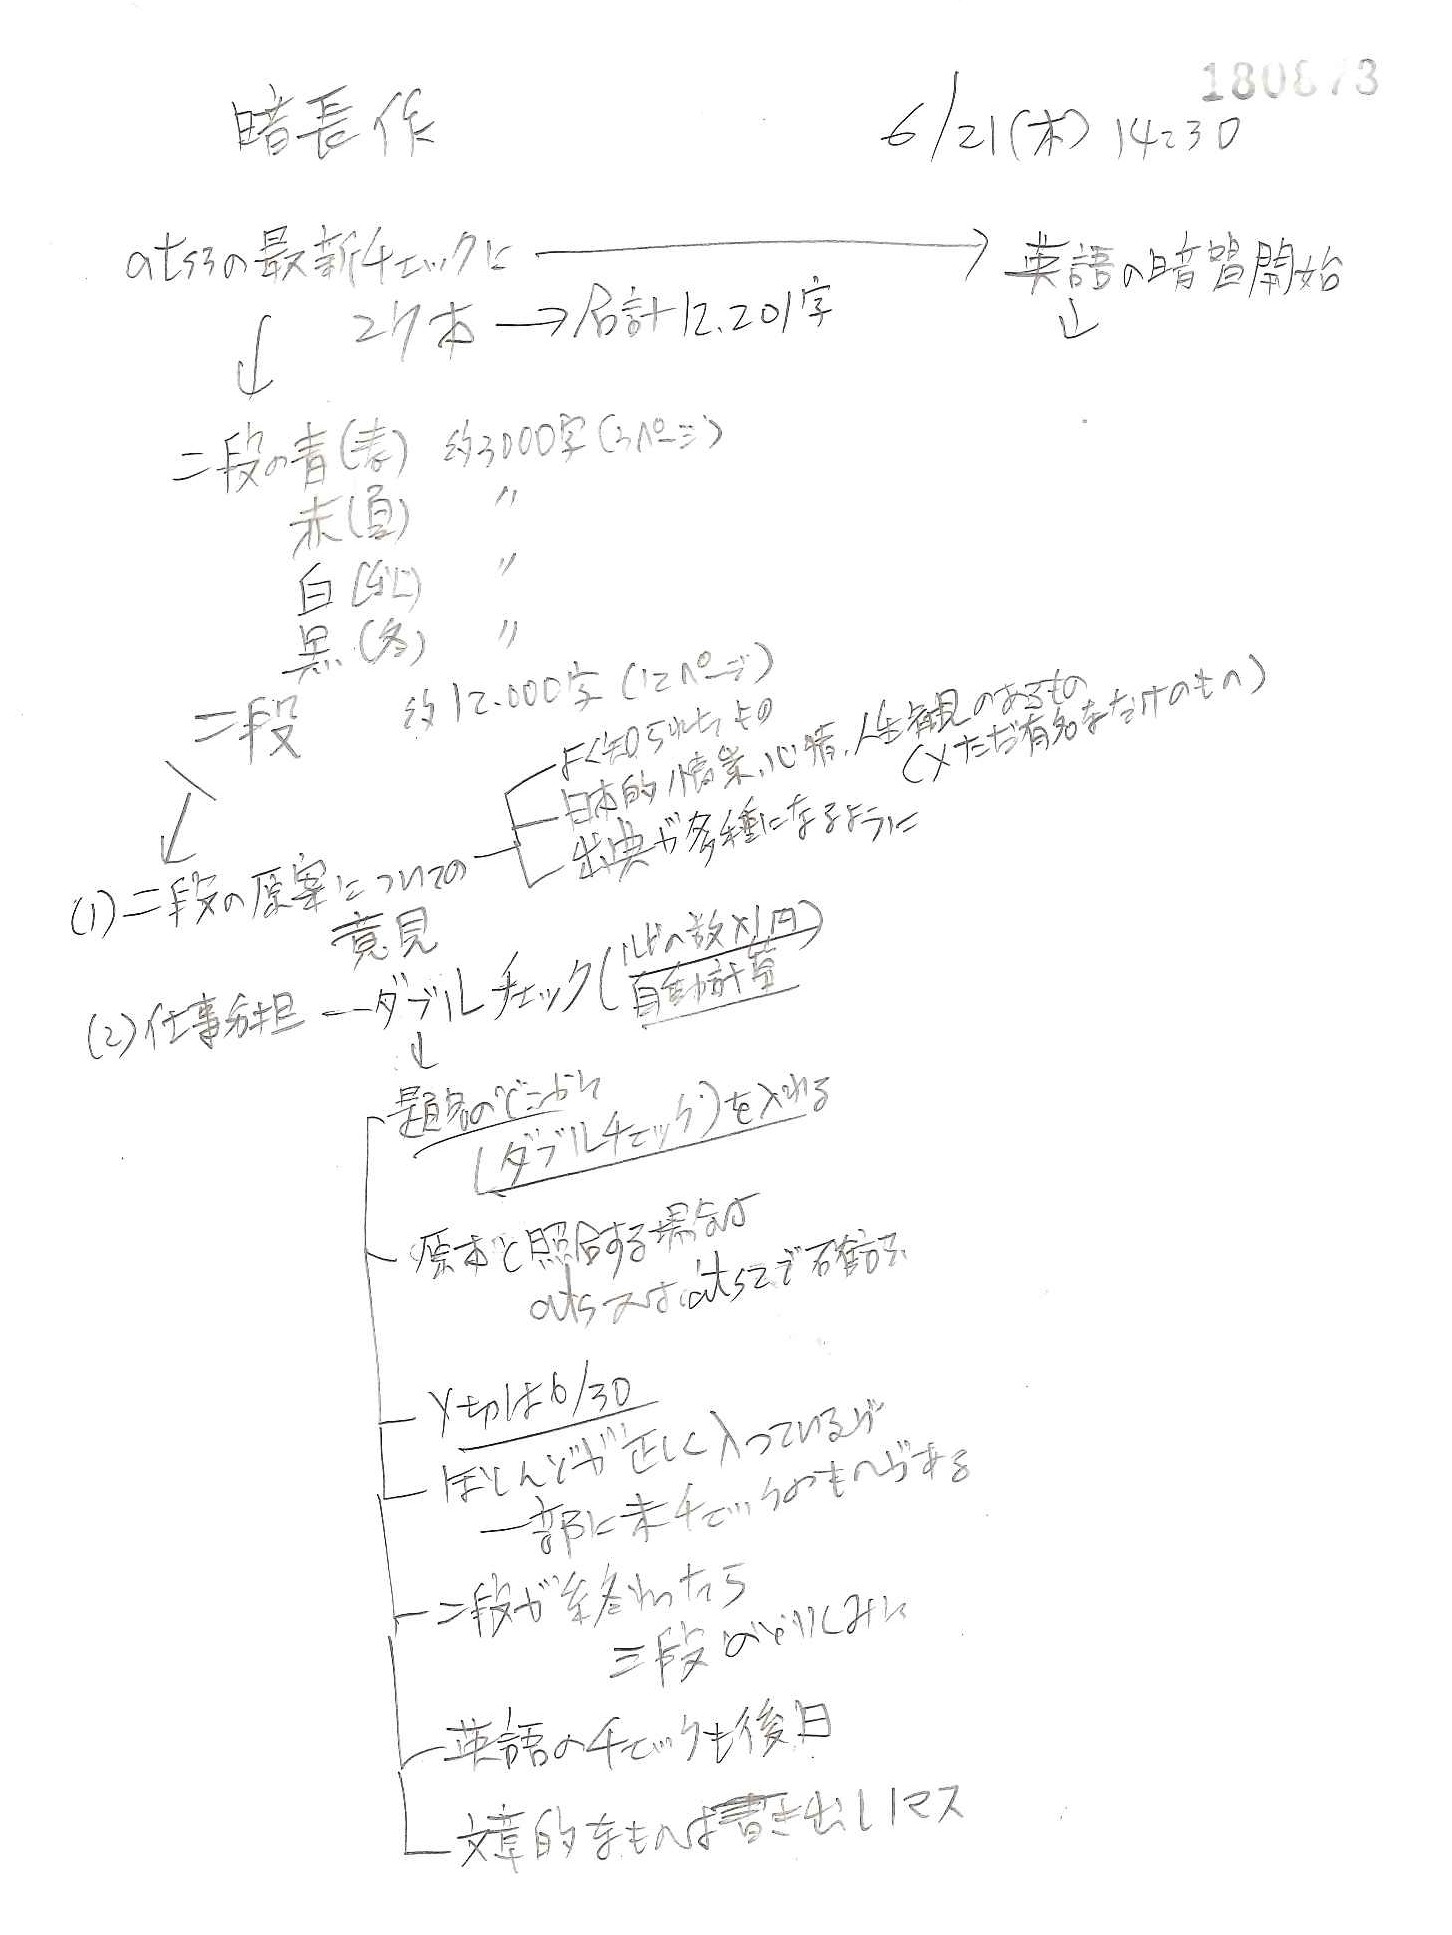 暗長作
6/21(木) 14:30
ats3の最新チェックに → 英語の暗習開始
↓ 27本 → 合計12.201字 ↓
二段の青(春) 約3000字(3ページ)
赤(夏) 〃
白(秋) 〃
黒(冬) 〃
二段 約12.000字(12ページ)
よく知られたもの
日本的情景、心情、人生観のあるもの
(×ただ有名なだけのもの)
出典が多種になるように
(1)二段の原案についての
意見
(2)仕事分担 ― ダブルチェック(の数×1円)
自動計算
↓
題名の
(ダブルチェック)を入れる
原本と照合する場合は
ats又はats2で確認
〆切は6/30
ほとんどが正しく入っているが
一部に未チェックのものがある
二段が終わったら
三段の
英語のチェックも後日
文章的なものは書き出し1マス